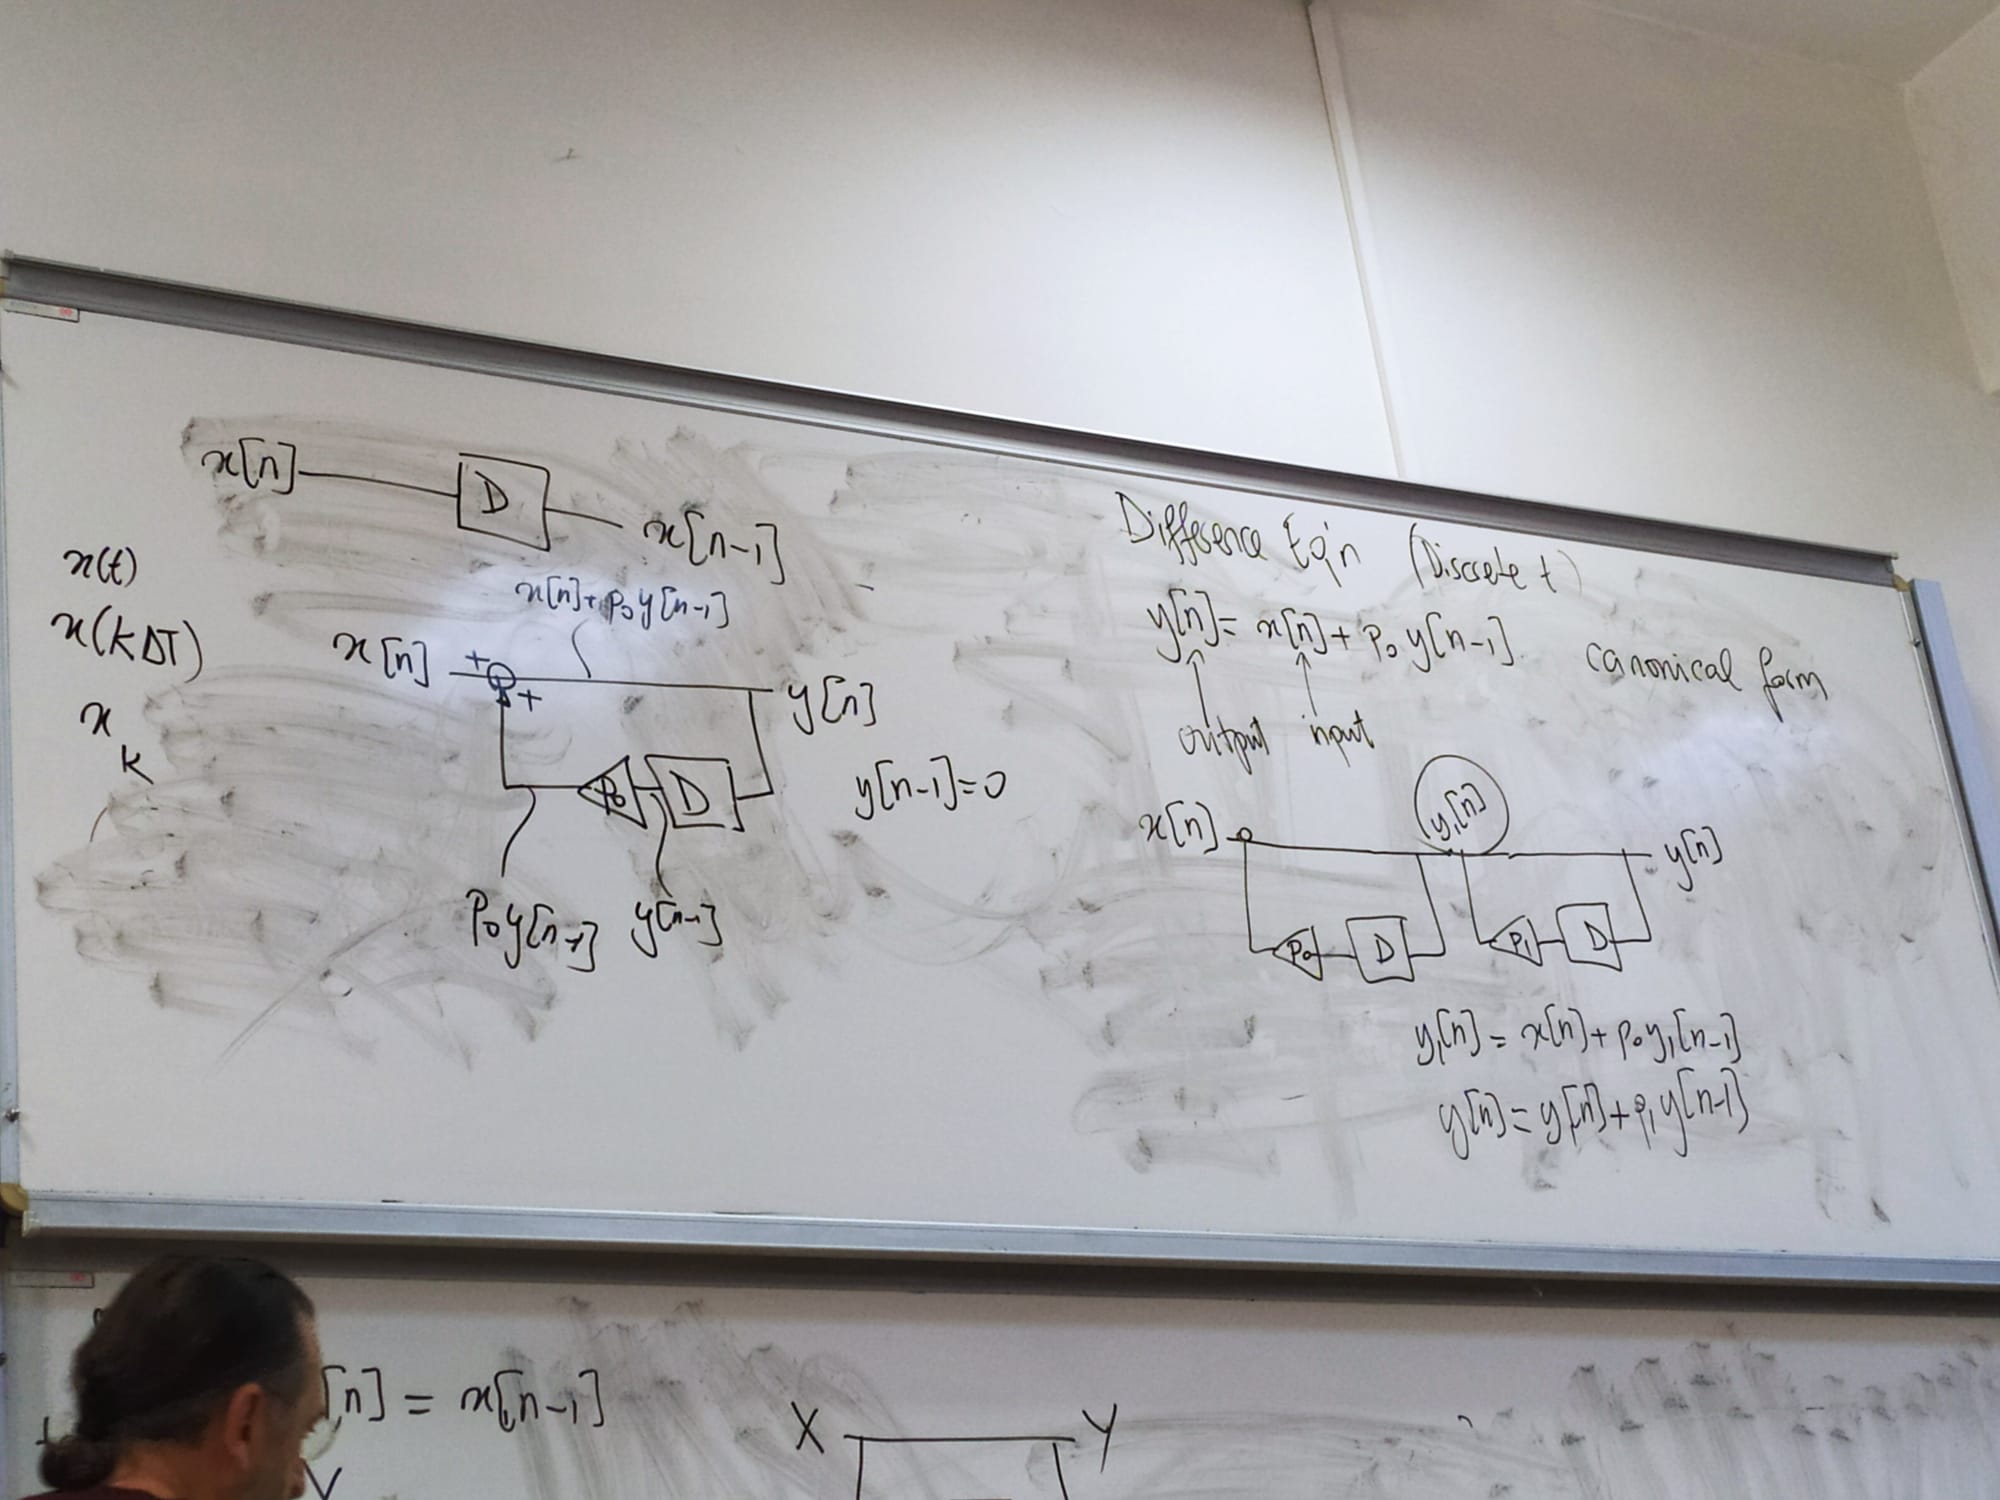 x[n]
D
x[n-1]
x(t)
x(kΔT)
x
k
x[n]+p₀y[n-1]
x[n]
+
+
y[n]
P₀
D
y[n-1]=0
P₀y[n-1]
y[n-1]
Difference Eq'n (Discrete t)
y[n]= x[n]+ p₀ y[n-1]
canonical form
output input
x[n]
y₁[n]
y[n]
P₀
D
P₁
D
y₁[n] = x[n]+ p₀y₁[n-1]
y[n]= y₁[n]+p₁y[n-1]
[n] = x[n-1]
X
Y